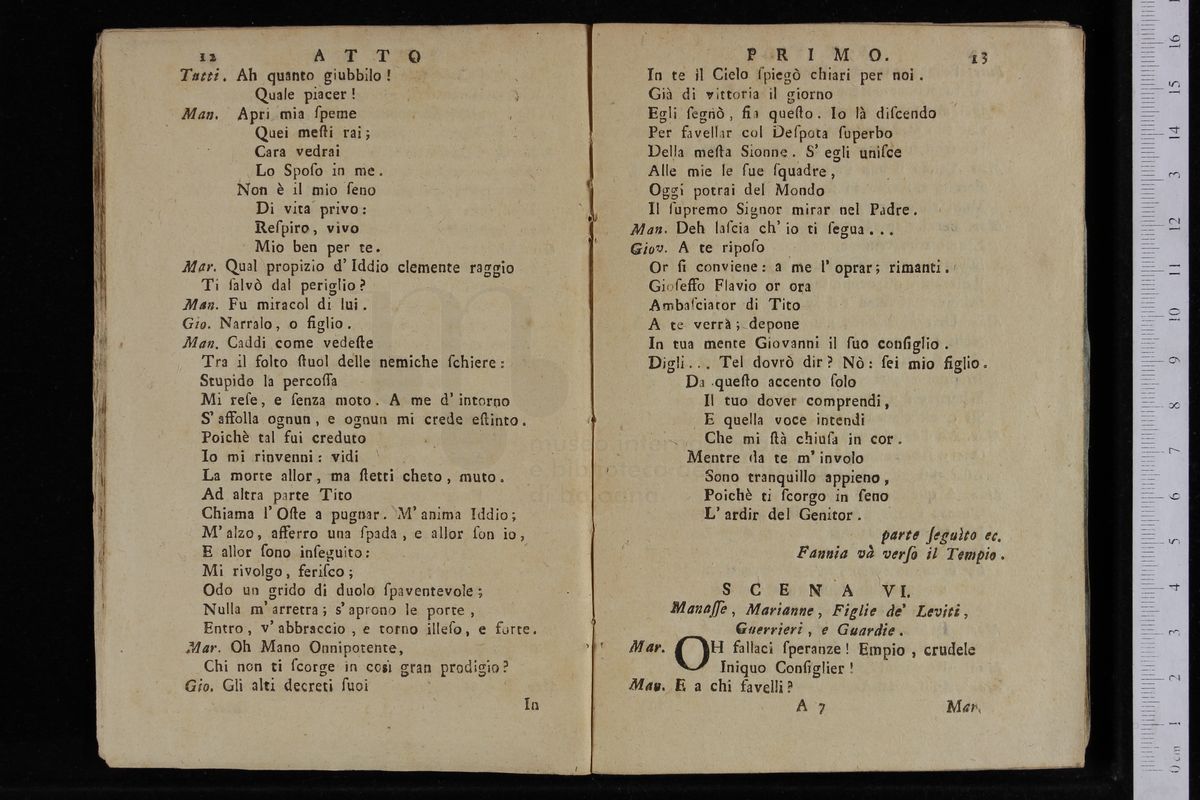 12 ATTO
Tutti. Ah quanto giubbilo!
Quale piacer!
Man. Apri mia ſpeme
Quei meſti rai;
Cara vedrai
Lo Spoſo in me.
Non è il mio ſeno
Di vita privo:
Reſpiro, vivo
Mio ben per te.
Mar. Qual propizio d'Iddio clemente raggio
Ti ſalvò dal periglio?
Man. Fu miracol di lui.
Gio. Narralo, o figlio.
Man. Caddi come vedeſte
Tra il folto ſtuol delle nemiche ſchiere:
Stupido la percoſſa
Mi reſe, e ſenza moto. A me d'intorno
S'affolla ognun, e ognun mi crede eſtinto.
Poichè tal fui creduto
Io mi rinvenni: vidi
La morte allor, ma ſtetti cheto, muto.
Ad altra parte Tito
Chiama l'Oſte a pugnar. M'anima Iddio;
M'alzo, afferro una ſpada, e allor ſon io,
E allor ſono inſeguito:
Mi rivolgo, feriſco;
Odo un grido di duolo ſpaventevole;
Nulla m'arretra; s'aprono le porte,
Entro, v'abbraccio, e torno illeſo, e forte.
Mar. Oh Mano Onnipotente,
Chi non ti ſcorge in così gran prodigio?
Gio. Gli alti decreti ſuoi
In
PRIMO. 13
In te il Cielo ſpiegò chiari per noi.
Già di vittoria il giorno
Egli ſegnò, ſia queſto. Io là diſcendo
Per favellar col Deſpota ſuperbo
Della meſta Sionne. S'egli uniſce
Alle mie le ſue ſquadre,
Oggi potrai del Mondo
Il ſupremo Signor mirar nel Padre.
Man. Deh laſcia ch'io ti ſegua...
Giov. A te ripoſo
Or ſi conviene: a me l'oprar; rimanti.
Gioſeffo Flavio or ora
Ambaſciator di Tito
A te verrà; depone
In tua mente Giovanni il ſuo conſiglio.
Digli... Tel dovrò dir? Nò: ſei mio figlio.
Da queſto accento ſolo
Il tuo dover comprendi,
E quella voce intendi
Che mi ſtà chiuſa in cor.
Mentre da te m'involo
Sono tranquillo appieno,
Poichè ti ſcorgo in ſeno
L'ardir del Genitor.
parte ſeguìto ec.
Fannia và verſo il Tempio.
SCENA VI.
Manaſſe, Marianne, Figlie de' Leviti,
Guerrieri, e Guardie.
Mar. OH fallaci ſperanze! Empio, crudele
Iniquo Conſiglier!
Man. E a chi favelli?
A 7 Mar.